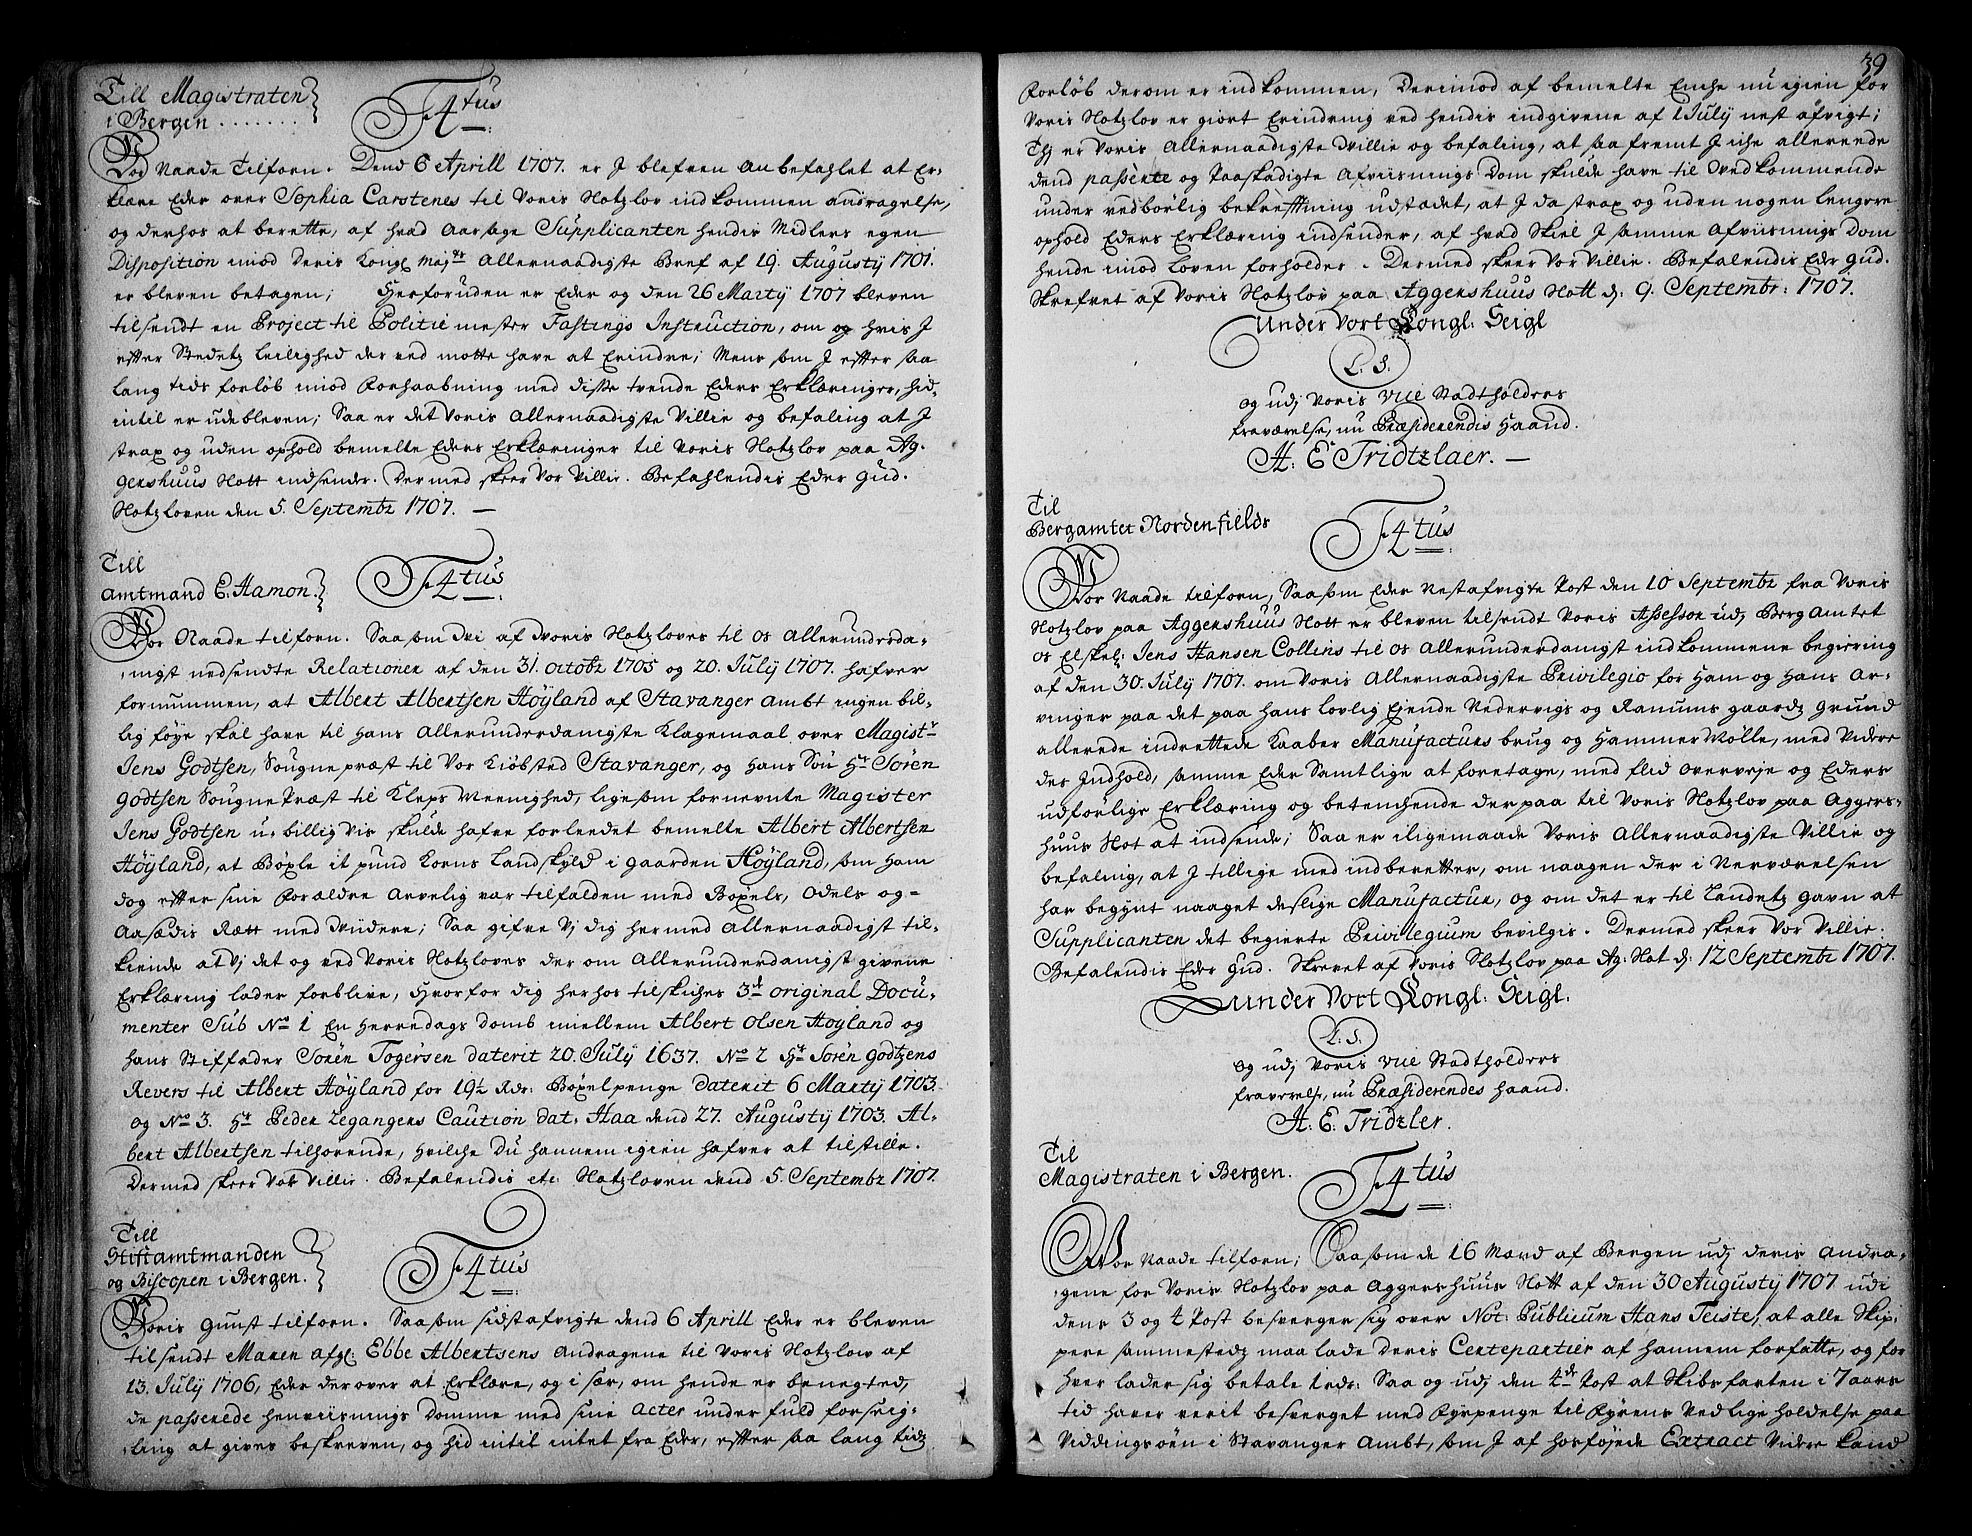 Till Magistraten
i Bergen . . . . . . .
F 4tus
Vor Naade Tilforn. Dend 6 Aprill 1707. er I blefven anbefahlet at Er-
klære Eder over Sophia Carstenes til Voris Slotzlov indkommen andragelse,
og derhos at berette, af hvad Aarsage Supplicanten hendis Midlers egen
Disposition imod Deris Kongl Mayts Allernaadigste Bref af 19. Augusty 1701.
er bleven betagen; Herforuden er Eder og den 26 Marty 1707 bleven
tilsendt en Project til Politie mester Fastings Instruction, om og hvis I
efter Stedetz leilighed der ved motte have at Erindre; Mens som I efter saa
lang tids forløb imod Forhaabning med disse tvende Eders Erklæringer, hid-
intil er udebleven; Saa er det Voris Allernaadigste Villie og befaling at I
strax og uden ophold bemelte Eders Erklæringer til Voris Slotzlov paa Ag-
gershuus Slott indsender. Dermed skeer Vor Villie. Befahlendis Eder Gud.
Slotzloven den 5. Septembr 1707. —
Till
Amtmand C. Hamon.
F 4tus
Vor Naade tilforn. Saasom Wi af Woris Slotzloves til os Allerunderda-
nigst nedsendte Relationer af den 31. octobr 1705 og 20. July 1707. hafver
fornummen, at Albert Albertsen Höyland af Stavanger Ambt ingen bil-
lig føye skal have til hans Allerunderdanigste Klagemaal over Magistr
Jens Godtsen, Sougnepræst til Vor Kiöbsted Stavanger, og hans Sön Hr Sören
Godtsen Sougne Præst til Kleps Meenighed, ligesom fornevnte Magister
Jens Godtsen u-billig vis skulde hafve forleedet bemelte Albert Albertsen
Höyland, at Böxle it pund Korns Landskyld i gaarden Höyland, som ham
dog efter sine Forældre Arvelig var tilfalden med Böxels, Odels og-
Aasædis Rætt med Widere; Saa gifve Vj dig hermed Allernaadigst til-
kiende at Vj det og ved Voris Slotzloves der om Allerunderdanigst givene
Erklæring lader forblive, Hvorfor dig herhos tilskiches 3de original Docu-
menter Sub No 1 En Herredags Domb imellem Albert Olsen Höyland og
hans Stiffader Sören Togersen daterit 20. July 1637. No 2 Hr Sören Godtzens
Revers til Albert Höyland for 19½ Rdr: Böxelpenge daterit 6 Marty 1703.
og No 3. Hr Peder Zegangers Caution dat. Haa dend 27. Augusty 1703. Al-
bert Albertsen tilhörende, Hvilche Du hannem igien hafver at tilstille.
Dermed skeer Vor Villie. Befalendis etc Slotzloven dend 5. Septembr 1707.
Till
Stiftamtmanden
og Biscopen i Bergen.
F 4tus
Voris Gunst tilforn. Saasom sidstafvigte dend 6 Aprill Eder er bleven
tilsendt Maren afgl: Ebbe Albertsens Andragene til Voris Slotzlow af
13. July 1706, Eder derover at Erklære, og i sær, om hende er benegted,
de passerede henviisnings Domme med sine Acter under fuld forseig-
ling at gives beskreven, og hid intil intet fra Eder, efter saa lang tids
39
Forløb derom er indkommen, Derimod af bemelte Enche nu igien for
Voris Slotzlov er giort Erindring ved hendis indgivene af 1 July nest afvigt;
Thj er Voris Allernaadigste Willie og befaling, at saa fremt I iche allerende
dend passerte og Paaskadigte Afviisnings Dom skulde have til Wedkommende
under vedbörlig bekræftning udstædet, at I da strax og uden nogen lengere
ophold Eders Erklæring indsender, af hvad Skiel I samme Afviisnings Dom
hende imod Loven forholder. Dermed skeer Vor Villie. Befalendis Eder Gud.
Skrefvet af Voris Slotzlov paa Aggershuus Slott d: 9. Septembr: 1707.
Under Vort Kongl: Seigl
L. S.
og udj Voris Vice Stadtholders
fraværelse, nu Præsiderendis Haand.
H: E Tridtzlaer. —
Til
Bergamtet Nordenfields
F 4tus
Vor Naade tilforn, Saasom Eder Nestafvigte Post den 10 Septembr fra Voris
Slotzlov paa Aggershuus Slott er bleven tilsendt Voris Assessor udj Berg Amtet
os Elskel: Jens Hansen Collins til os Allerunderdanigst indkommene begiering
af den 30. July 1707. om Voris Allernaadigste Privilegio for Ham og Hans Ar-
vinger paa det paa hans lovlig Eiende Vedervigs og Ranums gaards Grund
allerede indrettede Kaaber Manufacturs brug og Hammer Mölle, med Videre
des Indhold, samme Eder Samtlige at foretage, med flid overveje og Eders
udforlige Erklæring og betenchende derpaa til Voris Slotzlov paa Aggers-
huus Slot at indsende; Saa er iligemaade Voris Allernaadigste Villie og
befaling, at I tillige med indberetter, om naagen der i Nerværelsen
har begynt naaget deslige Manufactur, og om det er til Landetz Gavn at
Supplicanten det begierte Privilegium bevilgis. Dermed skeer Vor Villie.
Befalendis Eder Gud. Skrevet af Voris Slotzlov paa Ag: Slot d: 12 Septembr 1707.
Under Vort Kongl: Seigl.
L. S.
og udj Voris Vice Stadtholders
fraverelse, nu Præsiderendes Haand.
H. E. Tridzler.
Til
Magistraten i Bergen.
F 4tus
Vor Naade tilforn; Saasom de 16 Mænd af Bergen udj deris Andra-
gene for Voris Slotzlov paa Aggershuus Slott af den 30 Augusty 1707 udi
dens 3 og 4 Post besverger sig over Not: Publicum Hans Teiste, at alle Skip-
pere sammestedz maa lade deris Certepartier af hannem forfatte, og for
hver lader sig betale 1 rdr: Saa og udj den 4de Post at Skibsfarten i 7 aars
tid haver verit besverget med Fyrpenge til Fyrens Vedligeholdelse paa
Viddingsöen i Stavanger Ambt, som I af hosföjede Extract Videre kand